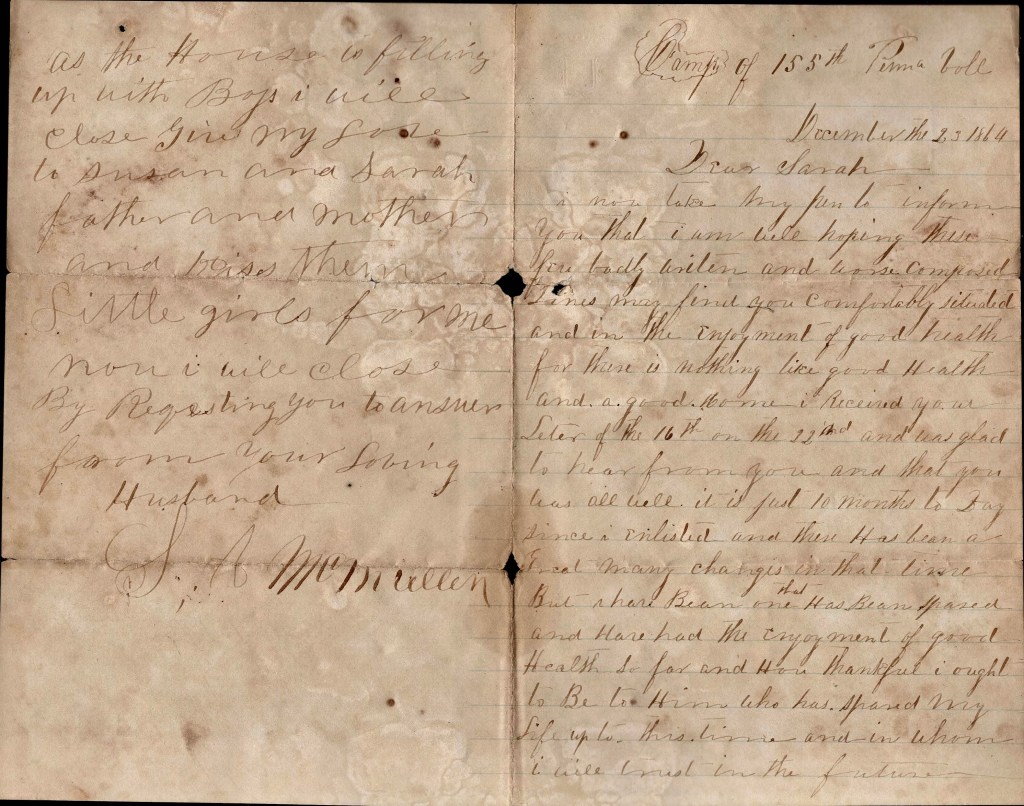 Camp of 155th Penna Voll
December the 23 1864
Dear Sarah
i now take my pen to inform
you that i am well hoping these
few badly writen and worse composed
Lines may find you comfortably situated
and in the enjoyment of good health
for there is nothing like good Health
and a good Home i Received your
Leter of the 16th on the 22nd and was glad
to hear from you and that you
was all well it is just 10 months to Day
since i enlisted and there Has bean a
Great many changes in that time
But i have Bean one that Has Bean spared
and Have had the enjoyment of good
Health so far and How thankful i ought
to Be to Him who has spared my
Life up to this time and in whom
i will trust in the future
as the House is filling
up with Boys i will
close Give my Love
to susan and Sarah
father and mother
and kises them
Little girls for me
now i will close
By Requesting you to answer
from your Loving
Husband
S A McMullen